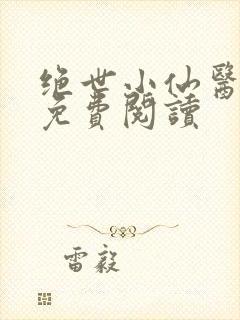 绝世小仙醫
免費閱讀
雷毅